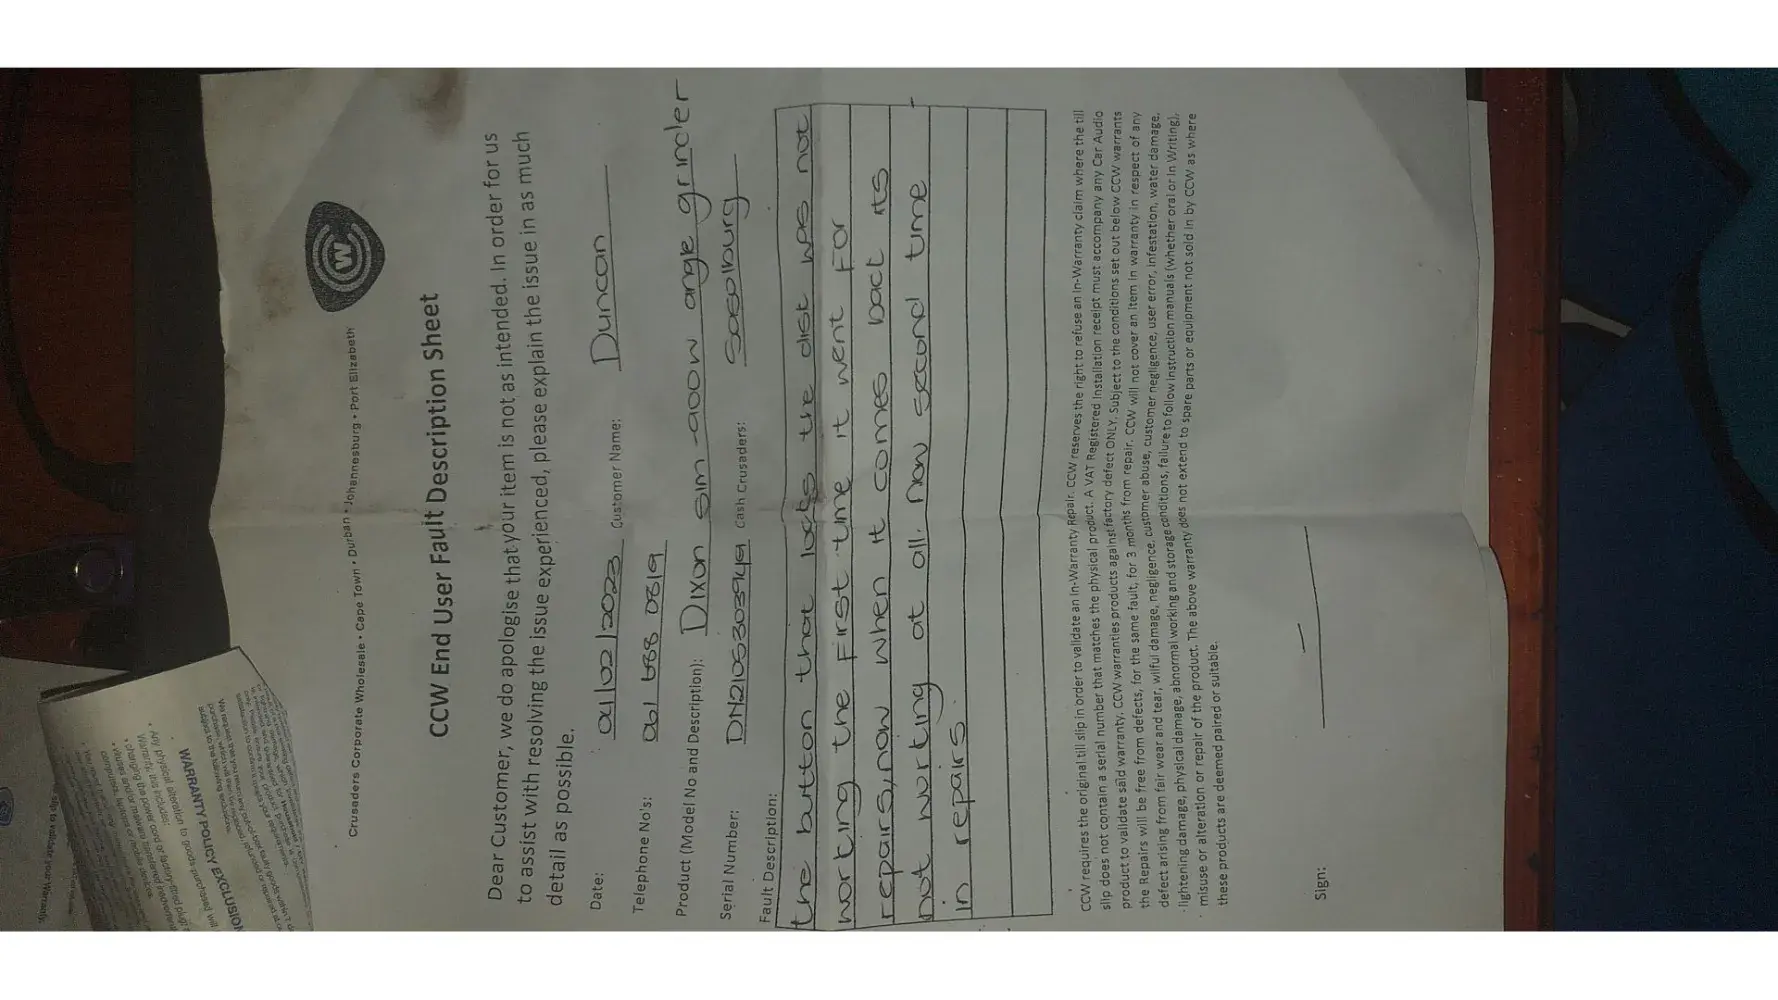 W
Crusaders Corporate Wholesale • Cape Town • Durban • Johannesburg • Port Elizabeth
CCW End User Fault Description Sheet
Dear Customer, we do apologise that your item is not as intended. In order for us
to assist with resolving the issue experienced, please explain the issue in as much
detail as possible.
Date: 04/02/2023 Customer Name: Duncan
Telephone No's: 061 688 0819
Product (Model No and Description): Dixon 5in -900w angle grinder
Serial Number: DN2105303949 Cash Crusaders: Sasolburg
Fault Description:
the button that locks the disk was not
working the First time it went For
repairs, now when it comes back its
not working at all. now second time
in repairs.
CCW requires the original till slip in order to validate an In-Warranty Repair. CCW reserves the right to refuse an In-Warranty claim where the till
slip does not contain a serial number that matches the physical product. A VAT Registered Installation receipt must accompany any Car Audio
product to validate said warranty. CCW warranties products against factory defect ONLY. Subject to the conditions set out below CCW warrants
the Repairs will be free from defects, for the same fault, for 3 months from repair. CCW will not cover an item in warranty in respect of any
defect arising from fair wear and tear, wilful damage, negligence, customer abuse, customer negligence, user error, infestation, water damage,
lightening damage, physical damage, abnormal working and storage conditions, failure to follow instruction manuals (whether oral or In Writing),
misuse or alteration or repair of the product. The above warranty does not extend to spare parts or equipment not sold in by CCW as where
these products are deemed paired or suitable.
Sign:
WARRANTY POLICY EXCLUSION